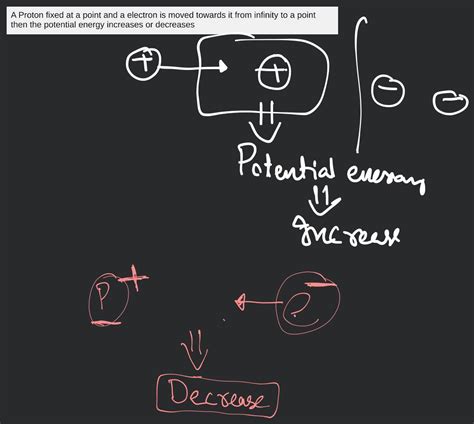 A Proton fixed at a point and a electron is moved towards it from infinity to a point
then the potential energy increases or decreases
+ → +
− −
Potential energy
Increase
P +
← e −
Decrease